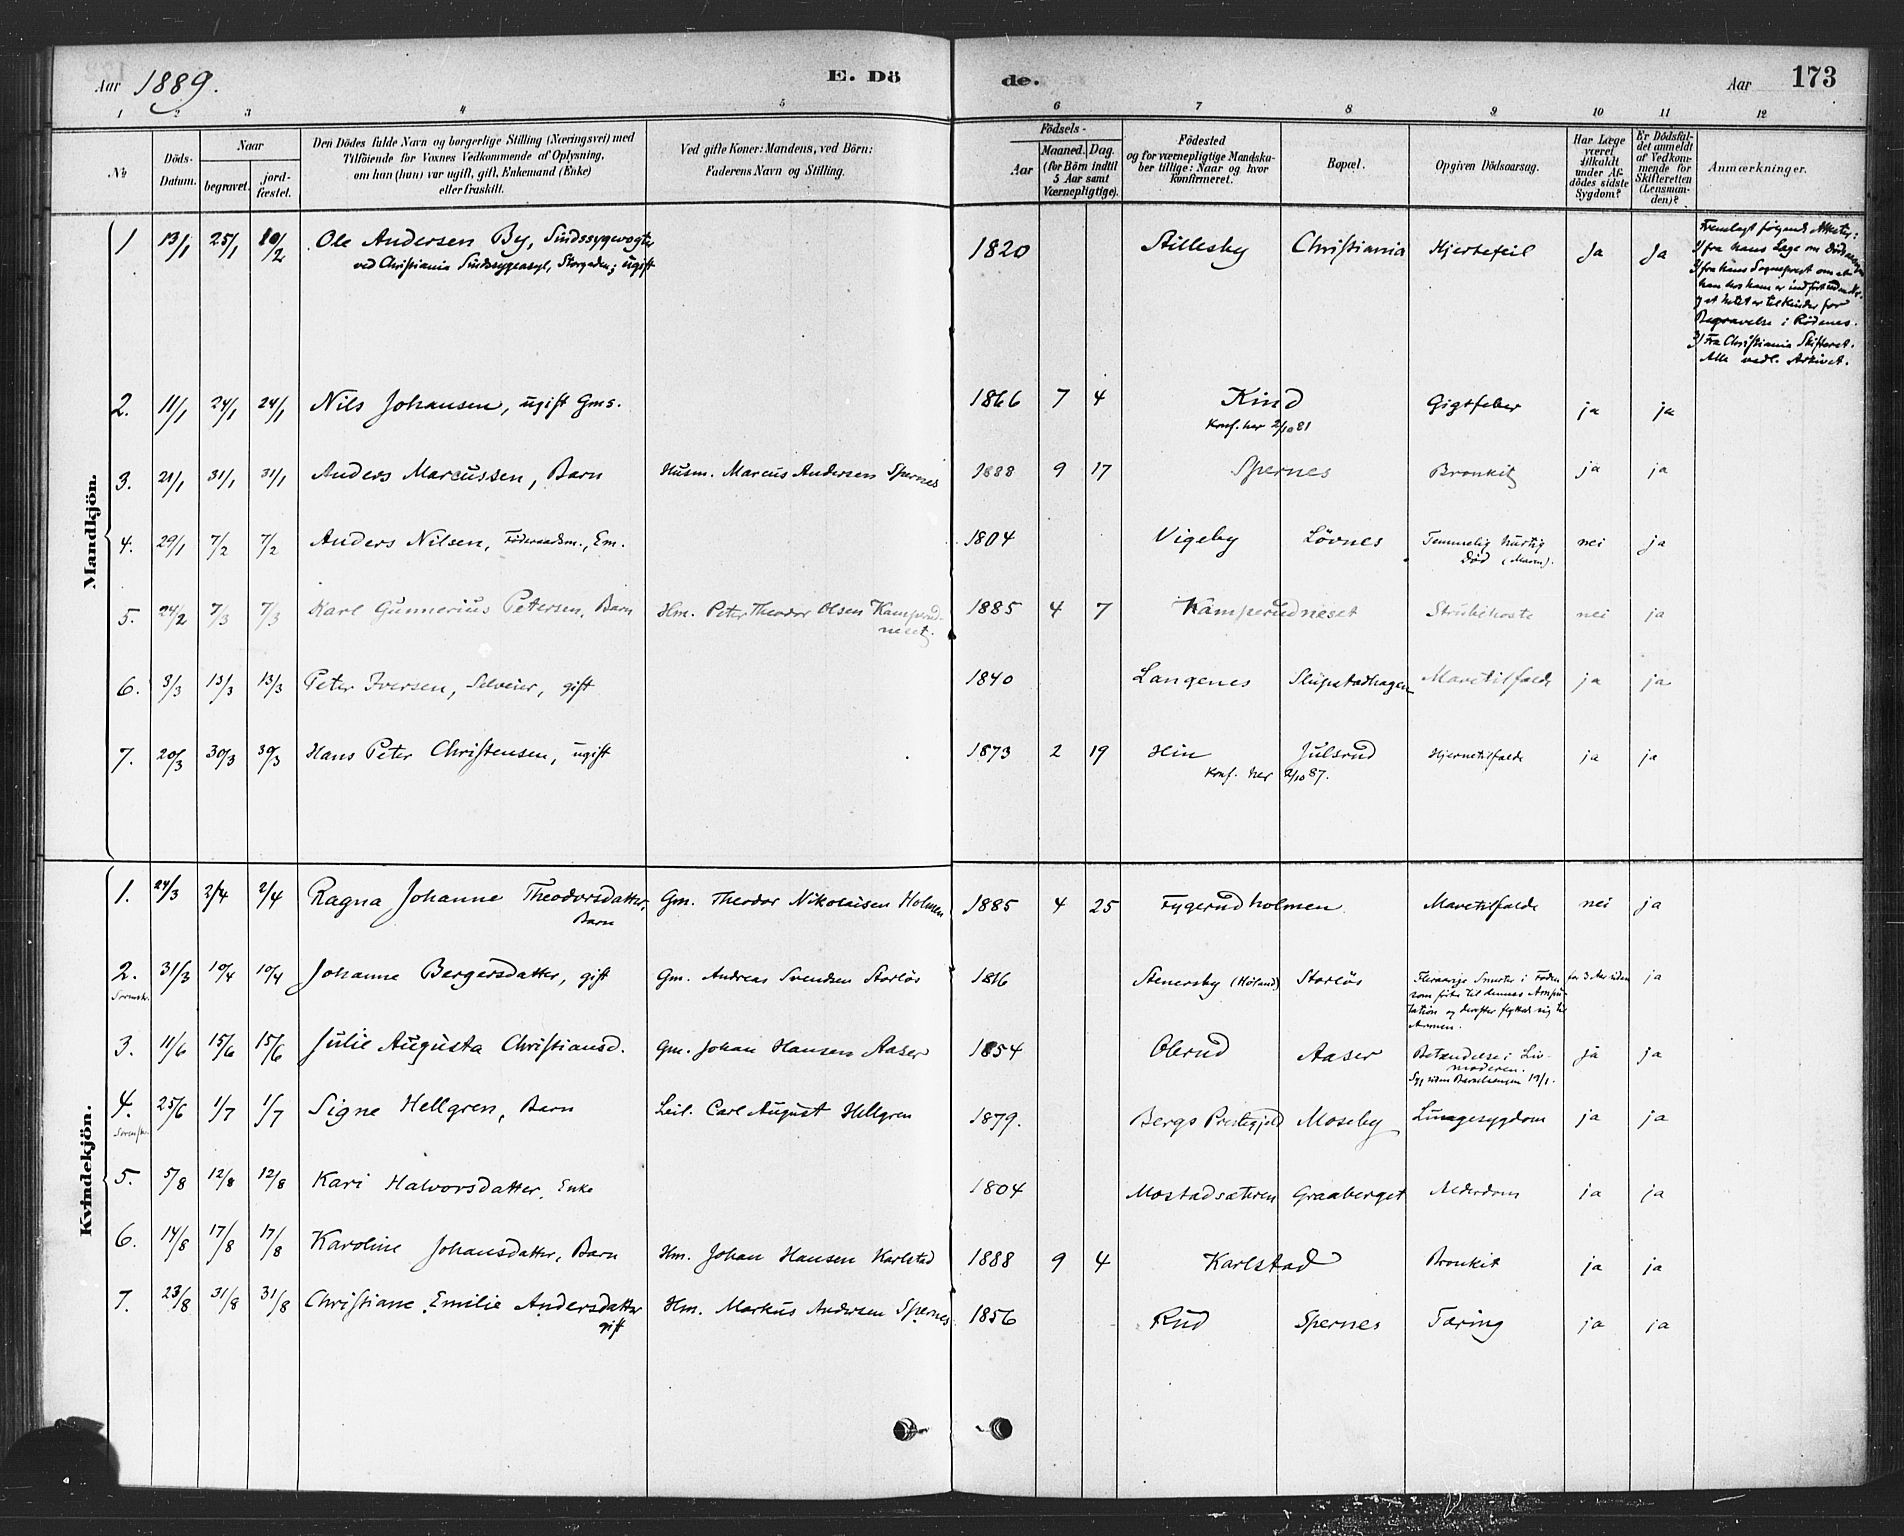 Aar 1889. E. Dö de. Aar 173
1 2 3 4 5 6 7 8 9 10 11 12
No
Döds-Datum.
Naar
begravet.
jord-fæstet.
Den Dödes fulde Navn og borgerlige Stilling (Næringsvei) med
Tilföiende for Voxnes Vedkommende af Oplysning,
om han (hun) var ugift, gift, Enkemand (Enke)
eller fraskilt.
Ved gifte Koner: Mandens, ved Börn:
Faderens Navn og Stilling.
Födsels-
Aar
Maaned. Dag.
(for Börn indtil
5 Aar samt
Værnepligtige).
Födested
og for værnepligtige Mandska-
ber tillige: Naar og hvor
konfirmeret.
Bopæl.
Opgiven Dödsaarsag.
Har Læge
været
tilkaldt
under Af-
dödes sidste
Sygdom?
Er Dödsfal-
det anmeldt
af Vedkom-
mende for
Skifteretten
(Lensman-
den)?
Anmærkninger.
Mandkjön.
1 13/1 25/1 10/2 Ole Andersen By, Sindssygevogter 1820 Sillesby Christiania Hjertefeil Ja Ja
ved Christiania Sindssygeasyl, Storgaden; ugift
Fremlagt følgende Attester:
1) fra hans Læge om Dødsaarsagen
2) fra hans Sogneprest om at
han hos ham er indført uden No.
og at Intet er til Hinder for
Begravelse i Rødenes.
3) Fra Christiania Skifteret.
Alle vedl. Arkivet.
2. 11/1 24/1 24/1 Nils Johansen, ugift Gms. 1866 7 4 Kind Gigtfeber ja ja
Konf. her 2/10 81
3. 21/1 31/1 31/1 Anders Marcussen, Barn Husm. Marcus Andersen Spernes 1888 9 17 Spernes Bronkit ja ja
4. 29/1 7/2 7/2 Anders Nilsen, Føderaadsm., Em. 1804 Vigeby Løvnes Temmelig hurtig nei ja
Død (Maven).
5. 24/2 7/3 7/3 Karl Gunnerius Petersen, Barn Hm. Peter Theodor Olsen Kamperud- 1885 4 7 Kamperudneset Strubehoste nei ja
neset.
6. 3/3 13/3 13/3 Peter Iversen, Selveier, gift 1840 Langenes Slupstadhagen Mavetilfælde ja ja
7. 20/3 30/3 30/3 Hans Peter Christensen, ugift 1873 2 19 Hin Julsrud Hjernetilfælde ja ja
Konf. her 2/10 87.
Kvindekjön.
1. 24/3 2/4 2/4 Ragna Johanne Theodorsdatter, Gm. Theodor Nikolaisen Holmen 1885 4 25 Fygerudholmen Mavetilfælde nei ja
Barn
2. 31/3 10/4 10/4 Johanne Bergersdatter, gift Gm. Andreas Svendsen Storløs 1816 Stenersby (Høland) Storløs Fleraarige Smerter i Foden for 3 Aar siden ja
som førte til dennes Ampu-
tation og derefter flyttede sig til
Armen.
3. 11/6 15/6 15/6 Julie Augusta Christiansd. Gm. Johan Hansen Aaser 1854 Olerud Aaser Betændelse i Liv- ja ja
moderen.
Syg siden Barselsengen 19/1.
4. 25/6 1/7 1/7 Signe Hellgren, Barn Leil. Carl August Hellgren 1879. Bergs Prestegjeld Moseby Lungesygdom ja ja
5. 5/8 12/8 12/8 Kari Halvorsdatter, Enke 1804 Mostadsæteren Graaberget Alderdom ja ja
6. 14/8 17/8 17/8 Karoline Johansdatter, Barn Hm. Johan Hansen Karlstad 1888 9 4 Karlstad Bronkit ja ja
7. 23/8 31/8 31/8 Christiane Emilie Andersdatter Hm. Markus Andersen Spernes 1856 Rud Spernes Tæring ja ja
gift